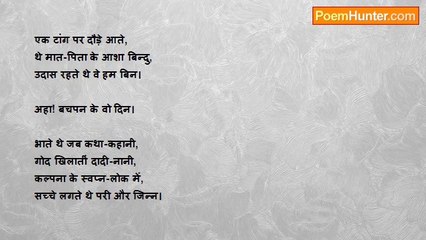 PoemHunter.com
एक टांग पर दौड़े आते,
थे मात-पिता के आशा बिन्दु,
उदास रहते थे वे हम बिन।
अहा! बचपन के वो दिन।
भाते थे जब कथा-कहानी,
गोद खिलातीं दादी-नानी,
कल्पना के स्वप्न-लोक में,
सच्चे लगते थे परी और जिन्न।